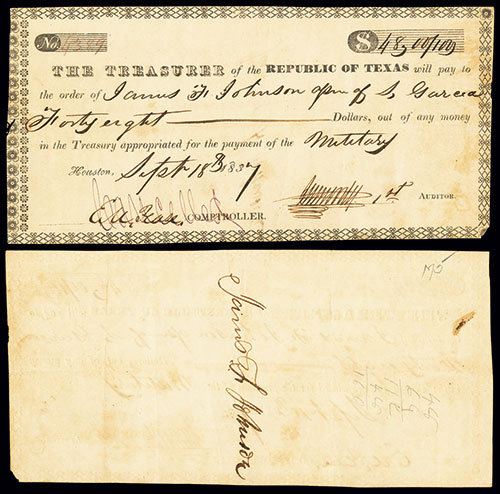 No.
$ 48,00/100
THE TREASURER of the REPUBLIC OF TEXAS will pay to
the order of James F Johnson of S. Garcia
Forty eight Dollars, out of any money
in the Treasury appropriated for the payment of the Military
Houston, Sept 18th 1837
1st AUDITOR.
COMPTROLLER.
James F Johnson